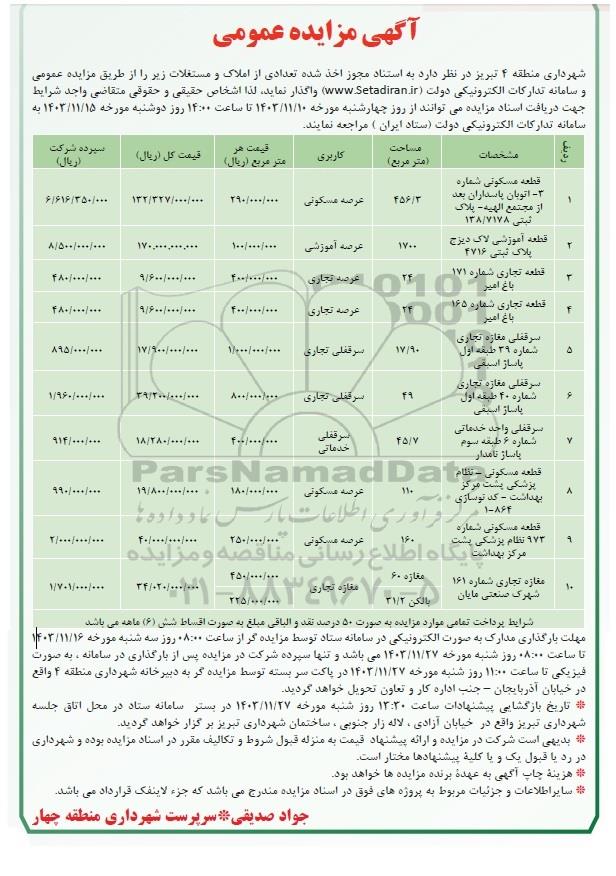 آگهی مزایده عمومی
شهرداری منطقه ۴ تبریز در نظر دارد به استناد مجوز اخذ شده تعدادی از املاک و مستغلات زیر را از طریق مزایده عمومی
و سامانه تدارکات الکترونیکی دولت (www.Setadiran.ir) واگذار نماید، لذا اشخاص حقیقی و حقوقی متقاضی واجد شرایط
جهت دریافت اسناد مزایده می توانند از روز چهارشنبه مورخه ۱۴۰۳/۱۱/۱۰ تا ساعت ۱۴:۰۰ روز دوشنبه مورخه ۱۴۰۳/۱۱/۱۵ به
سامانه تدارکات الکترونیکی دولت (ستاد ایران ) مراجعه نمایند.
ردیف مشخصات مساحت (متر مربع) کاربری قیمت هر متر مربع (ریال) قیمت کل (ریال) سپرده شرکت (ریال)
۱ قطعه مسکونی شماره ۳- اتوبان پاسداران بعد از مجتمع الهیه- پلاک ثبتی ۱۳۸/۷۱۷۸ ۴۵۶/۳ عرصه مسکونی ۲۹۰/۰۰۰/۰۰۰ ۱۳۲/۳۲۷/۰۰۰/۰۰۰ ۶/۶۱۶/۳۵۰/۰۰۰
۲ قطعه آموزشی لاک دیزج پلاک ثبتی ۴۷۱۶ ۱۷۰۰ عرصه آموزشی ۱۰۰/۰۰۰/۰۰۰ ۱۷۰.۰۰۰.۰۰۰.۰۰۰ ۸/۵۰۰/۰۰۰/۰۰۰
۳ قطعه تجاری شماره ۱۷۱ باغ امیر ۲۴ عرصه تجاری ۴۰۰/۰۰۰/۰۰۰ ۹/۶۰۰/۰۰۰/۰۰۰ ۴۸۰/۰۰۰/۰۰۰
۴ قطعه تجاری شماره ۱۶۵ باغ امیر ۲۴ عرصه تجاری ۴۰۰/۰۰۰/۰۰۰ ۹/۶۰۰/۰۰۰/۰۰۰ ۴۸۰/۰۰۰/۰۰۰
۵ سرقفلی مغازه تجاری شماره ۳۹ طبقه اول پاساژ اسبقی ۱۷/۹۰ سرقفلی تجاری ۱/۰۰۰/۰۰۰/۰۰۰ ۱۷/۹۰۰/۰۰۰/۰۰۰ ۸۹۵/۰۰۰/۰۰۰
۶ سرقفلی مغازه تجاری شماره ۴۰ طبقه اول پاساژ اسبقی ۴۹ سرقفلی تجاری ۸۰۰/۰۰۰/۰۰۰ ۳۹/۲۰۰/۰۰۰/۰۰۰ ۱/۹۶۰/۰۰۰/۰۰۰
۷ سرقفلی واحد خدماتی شماره ۶ طبقه سوم پاساژ نامدار ۴۵/۷ سرقفلی خدماتی ۴۰۰/۰۰۰/۰۰۰ ۱۸/۲۸۰/۰۰۰/۰۰۰ ۹۱۴/۰۰۰/۰۰۰
۸ قطعه مسکونی – نظام پزشکی پشت مرکز بهداشت - کد نوسازی ۱-۸۶۴ ۱۱۰ عرصه مسکونی ۱۸۰/۰۰۰/۰۰۰ ۱۹/۸۰۰/۰۰۰/۰۰۰ ۹۹۰/۰۰۰/۰۰۰
۹ قطعه مسکونی شماره ۹۷۳ نظام پزشکی پشت مرکز بهداشت ۱۶۰ عرصه مسکونی ۲۵۰/۰۰۰/۰۰۰ ۴۰/۰۰۰/۰۰۰/۰۰۰ ۲/۰۰۰/۰۰۰/۰۰۰
۱۰ مغازه تجاری شماره ۱۶۱ شهرک صنعتی مایان مغازه ۶۰ بالکن ۳۱/۲ مغازه تجاری ۴۵۰/۰۰۰/۰۰۰ ۲۲۵/۰۰۰/۰۰۰ ۳۴/۰۲۰/۰۰۰/۰۰۰ ۱/۷۰۱/۰۰۰/۰۰۰
شرایط پرداخت تمامی موارد مزایده به صورت ۵۰ درصد نقد و الباقی مبلغ به صورت اقساط شش (۶) ماهه می باشد
مهلت بارگذاری مدارک به صورت الکترونیکی در سامانه ستاد توسط مزایده گر از ساعت ۰۸:۰۰ روز سه شنبه مورخه ۱۴۰۳/۱۱/۱۶
تا ساعت ۰۸:۰۰ روز شنبه مورخه ۱۴۰۳/۱۱/۲۷ می باشد و تنها سپرده شرکت در مزایده پس از بارگذاری در سامانه ، به صورت
فیزیکی تا ساعت ۱۱:۰۰ روز شنبه مورخه ۱۴۰۳/۱۱/۲۷ در پاکت سر بسته توسط مزایده گر به دبیرخانه شهرداری منطقه ۴ واقع
در خیابان آذربایجان – جنب اداره کار و تعاون تحویل خواهد گردید.
* تاریخ بازگشایی پیشنهادات ساعت ۱۳:۳۰ روز شنبه مورخه ۱۴۰۳/۱۱/۲۷ در بستر سامانه ستاد در محل اتاق جلسه
شهرداری تبریز واقع در خیابان آزادی ، لاله زار جنوبی ، ساختمان شهرداری تبریز بر گزار خواهد گردید.
* بدیهی است شرکت در مزایده و ارائه پیشنهاد قیمت به منزله قبول شروط و تکالیف مقرر در اسناد مزایده بوده و شهرداری
در رد یا قبول یک و یا کلیهٔ پیشنهادها مختار است.
* هزینهٔ چاپ آگهی به عهدهٔ برنده مزایده ها خواهد بود.
* سایراطلاعات و جزئیات مربوط به پروژه های فوق در اسناد مزایده مندرج می باشد که جزء لاینفک قرارداد می باشد.
جواد صدیقی*سرپرست شهرداری منطقه چهار
ParsNamadData
مرکز فرآوری اطلاعات پارس نماد داده ها
پایگاه اطلاع رسانی مناقصه و مزایده
۰۲۱-۸۸۳۴۹۶۷۰-۵